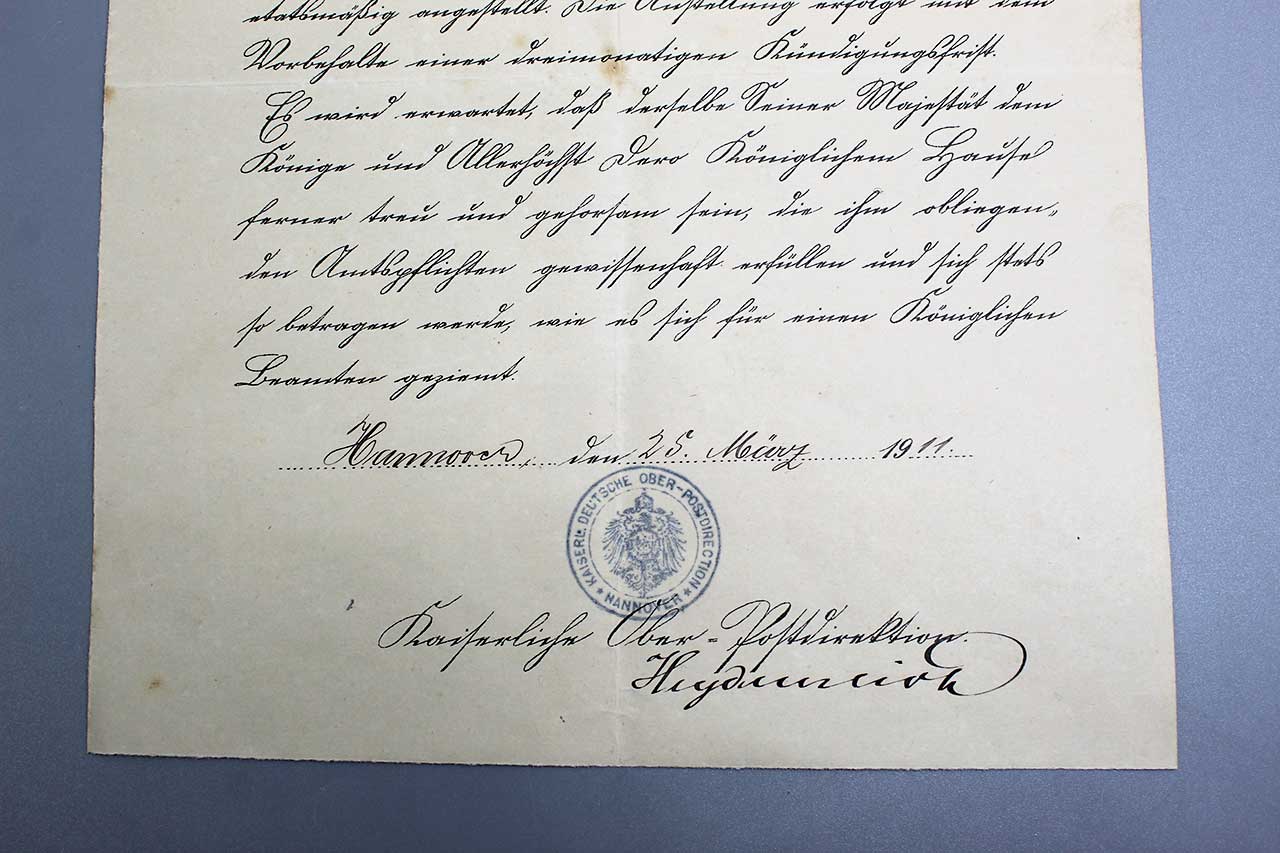 etatsmäßig angestellt. Die Anstellung erfolgt mit dem
Vorbehalte einer dreimonatigen Kündigungsfrist.
Es wird erwartet, daß derselbe Seiner Majestät dem
Könige und Allerhöchst Dero Königlichem Hause
ferner treu und gehorsam sein, die ihm obliegen-
den Amtspflichten gewissenhaft erfüllen und sich stets
so betragen werde, wie es sich für einen Königlichen
Beamten geziemt.
Hannover, den 25. März 1911.
KAISERL. DEUTSCHE OBER-POSTDIRECTION
* HANNOVER *
Kaiserliche Ober-Postdirektion.